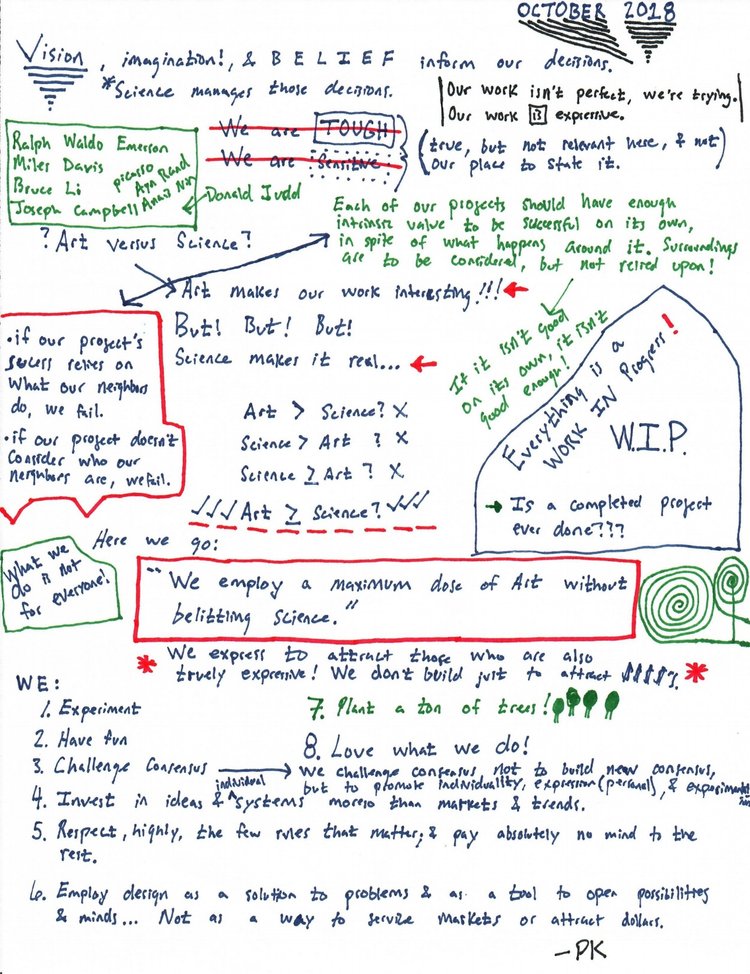 OCTOBER 2018
Vision, imagination!, & BELIEF inform our decisions.
*Science manages those decisions.
Our work isn't perfect, we're trying.
Our work is expressive.
We are TOUGH
We are Sensitive
(true, but not relevant here, & not
our place to state it.)
Ralph Waldo Emerson
Miles Davis
Bruce Li
Joseph Campbell
picasso
Ayn Rand
Anais Nin
Donald Judd
Each of our projects should have enough
intrinsic value to be successful on its own,
in spite of what happens around it. Surroundings
are to be considered, but not relied upon!
? Art versus Science?
Art makes our work interesting!!!
But! But! But!
Science makes it real...
If it isn't good
on its own, it isn't
good enough!
• if our project's
sucess relies on
what our neighbors
do, we fail.
• if our project doesn't
consider who our
neighbors are, we fail.
Art > Science? X
Science > Art ? X
Science ≥ Art ? X
✓✓✓ Art ≥ Science? ✓✓✓
Everything is a
WORK IN Progress!
W.I.P.
→ Is a completed project
ever done???
What we
do is not
for everyone!
Here we go:
"We employ a maximum dose of Art without
belittling science."
* We express to attract those who are also
truely expressive! We don't build just to attract $$$$'s. *
WE:
1. Experiment
2. Have fun
3. Challenge Consensus → We challenge consensus not to build new consensus,
but to promote individuality, expression (personal), & experimentation
4. Invest in ideas & individual systems moreso than markets & trends.
5. Respect, highly, the few rules that matter; & pay absolutely no mind to the
rest.
6. Employ design as a solution to problems & as a tool to open possibilities
& minds... Not as a way to service markets or attract dollars.
7. Plant a ton of trees!
8. Love what we do!
-PK